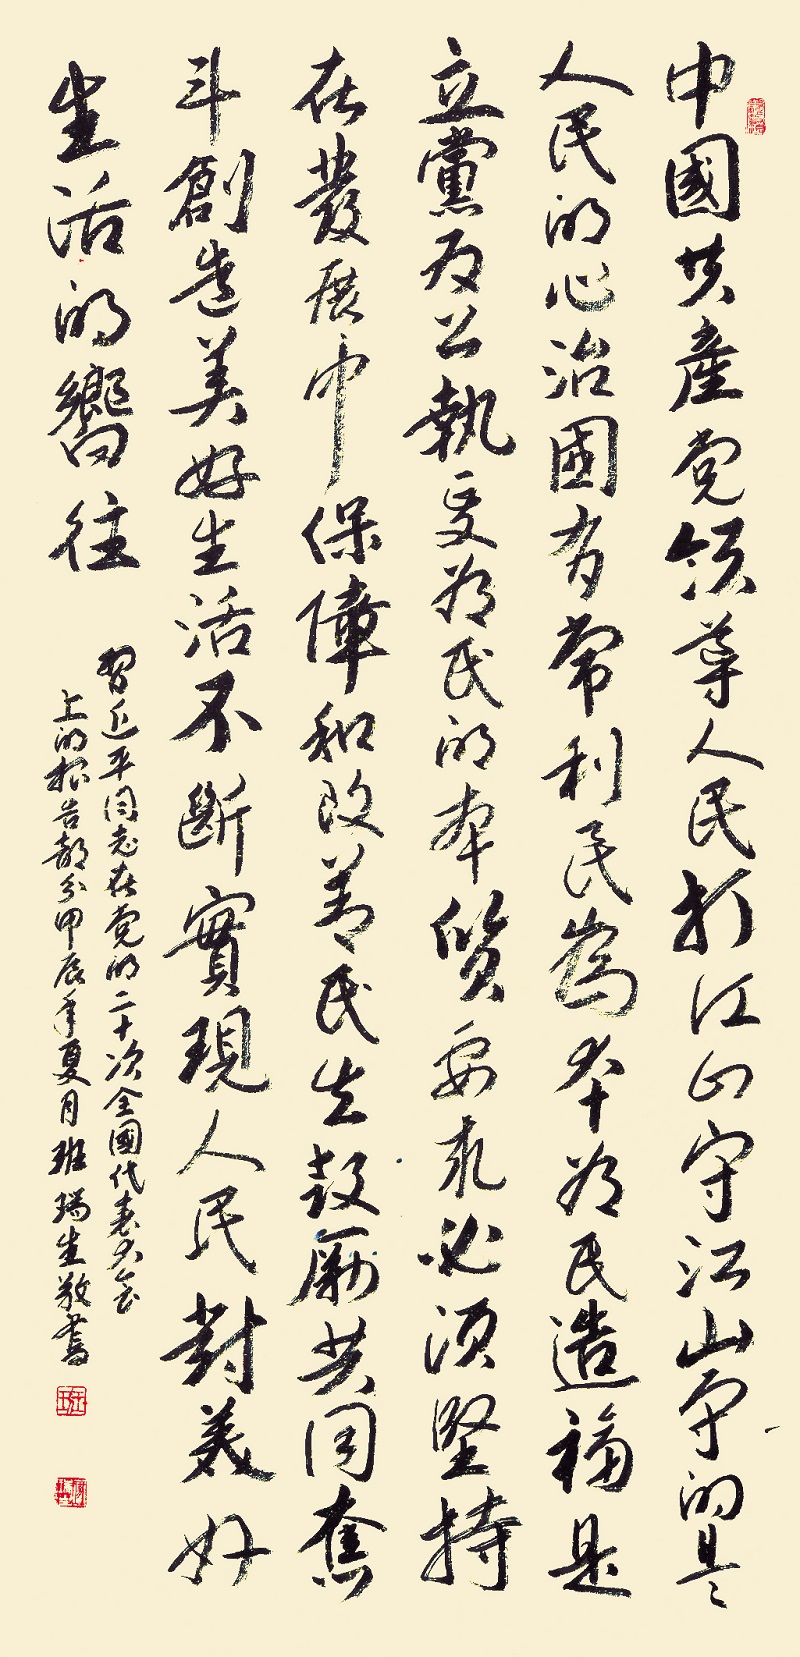 中國共產党領導人民打江山守江山守的是
人民的心治國有常利民為本為民造福是
立黨為公執政為民的本質要求必須堅持
在發展中保障和改善民生鼓勵共同奮
斗創造美好生活不斷實現人民對美好
生活的嚮往
習近平同志在党的二十次全國代表大会
上的报告部分甲辰年夏月班瑞生敬書